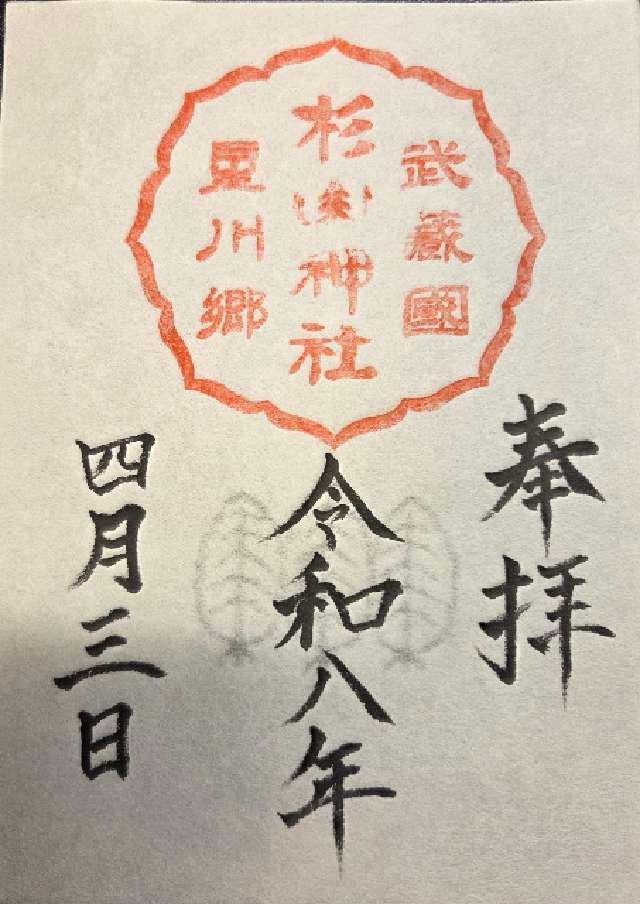 武蔵國
杉山神社
星川郷
奉拝
令和八年
四月三日